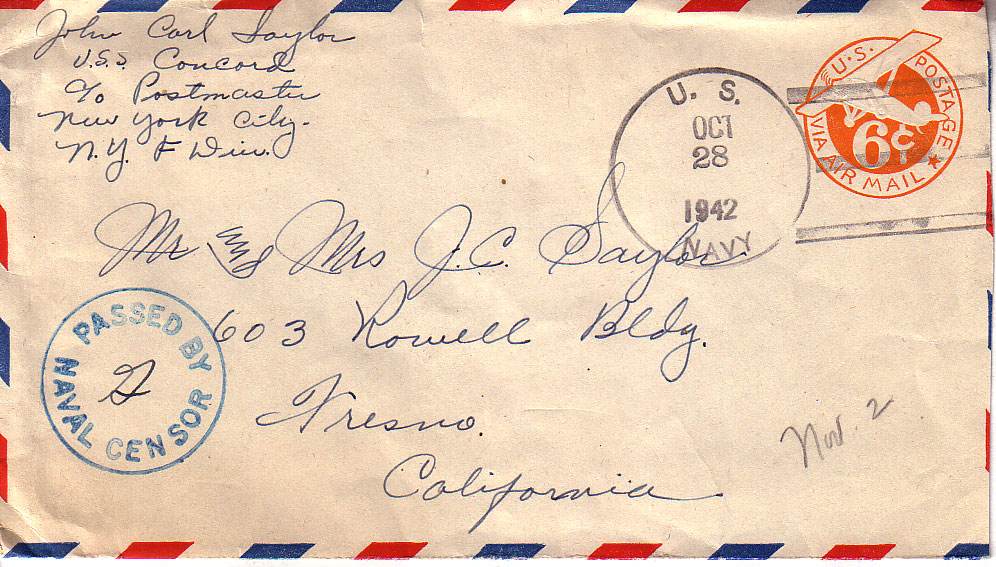 John Carl Saylor
U.S.S Concord
c/o Postmaster
New York City.
N.Y. F Div.
U. S.
OCT
28
1942
NAVY
U.S. POSTAGE
6¢
VIA AIR MAIL
Mr and Mrs J.C. Saylor.
603 Rowell Bldg.
Fresno.
California
PASSED BY
NAVAL CENSOR
Nov. 2